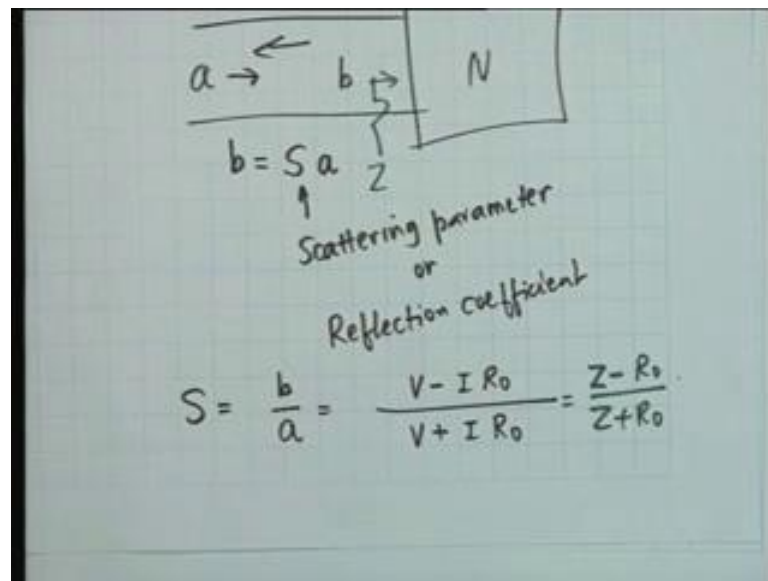 a → b → N
b = S a Z
Scattering parameter
or
Reflection coefficient
S = b/a = (V - I R₀)/(V + I R₀) = (Z - R₀)/(Z + R₀)